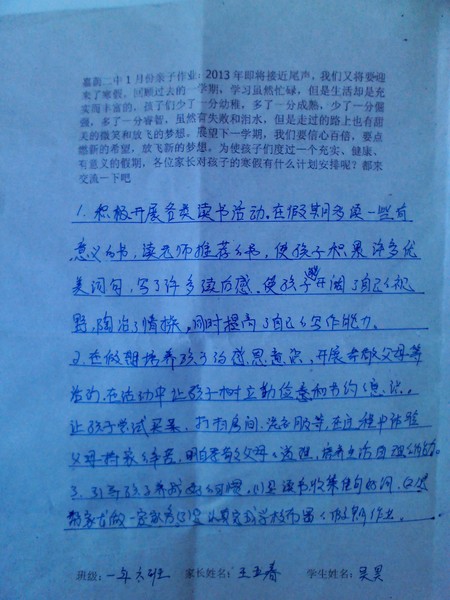 嘉荫二中1月份亲子作业：2013年即将接近尾声，我们又将要迎
来了寒假，回顾过去的一学期，学习虽然忙碌，但是生活却是充
实而丰富的，孩子们少了一分幼稚，多了一分成熟，少了一分倔
强，多了一分睿智，虽然有失败和泪水，但是走过的路上也有甜
美的微笑和放飞的梦想，展望下一学期，我们要信心百倍，要点
燃新的希望，放飞新的梦想，为使孩子们度过一个充实、健康、
有意义的假期，各位家长对孩子的寒假有什么计划安排呢？都来
交流一下吧
1. 积极开展各类读书活动。在假期多读一些有
意义的书，读老师推荐的书，使孩子积累许多优
美词句，写了许多读后感。使孩子开阔了自己的视
野，陶冶了情操，同时提高了自己的写作能力。
2. 在假期培养孩子的感恩意识，开展孝敬父母等
活动，在活动中让孩子树立勤俭意和节约意识。
让孩子尝试买菜、打扫房间、洗衣服等，在过程中体验
父母
3. 引导孩子养成
班级：一年六班 家长姓名：王玉春 学生姓名：吴昊